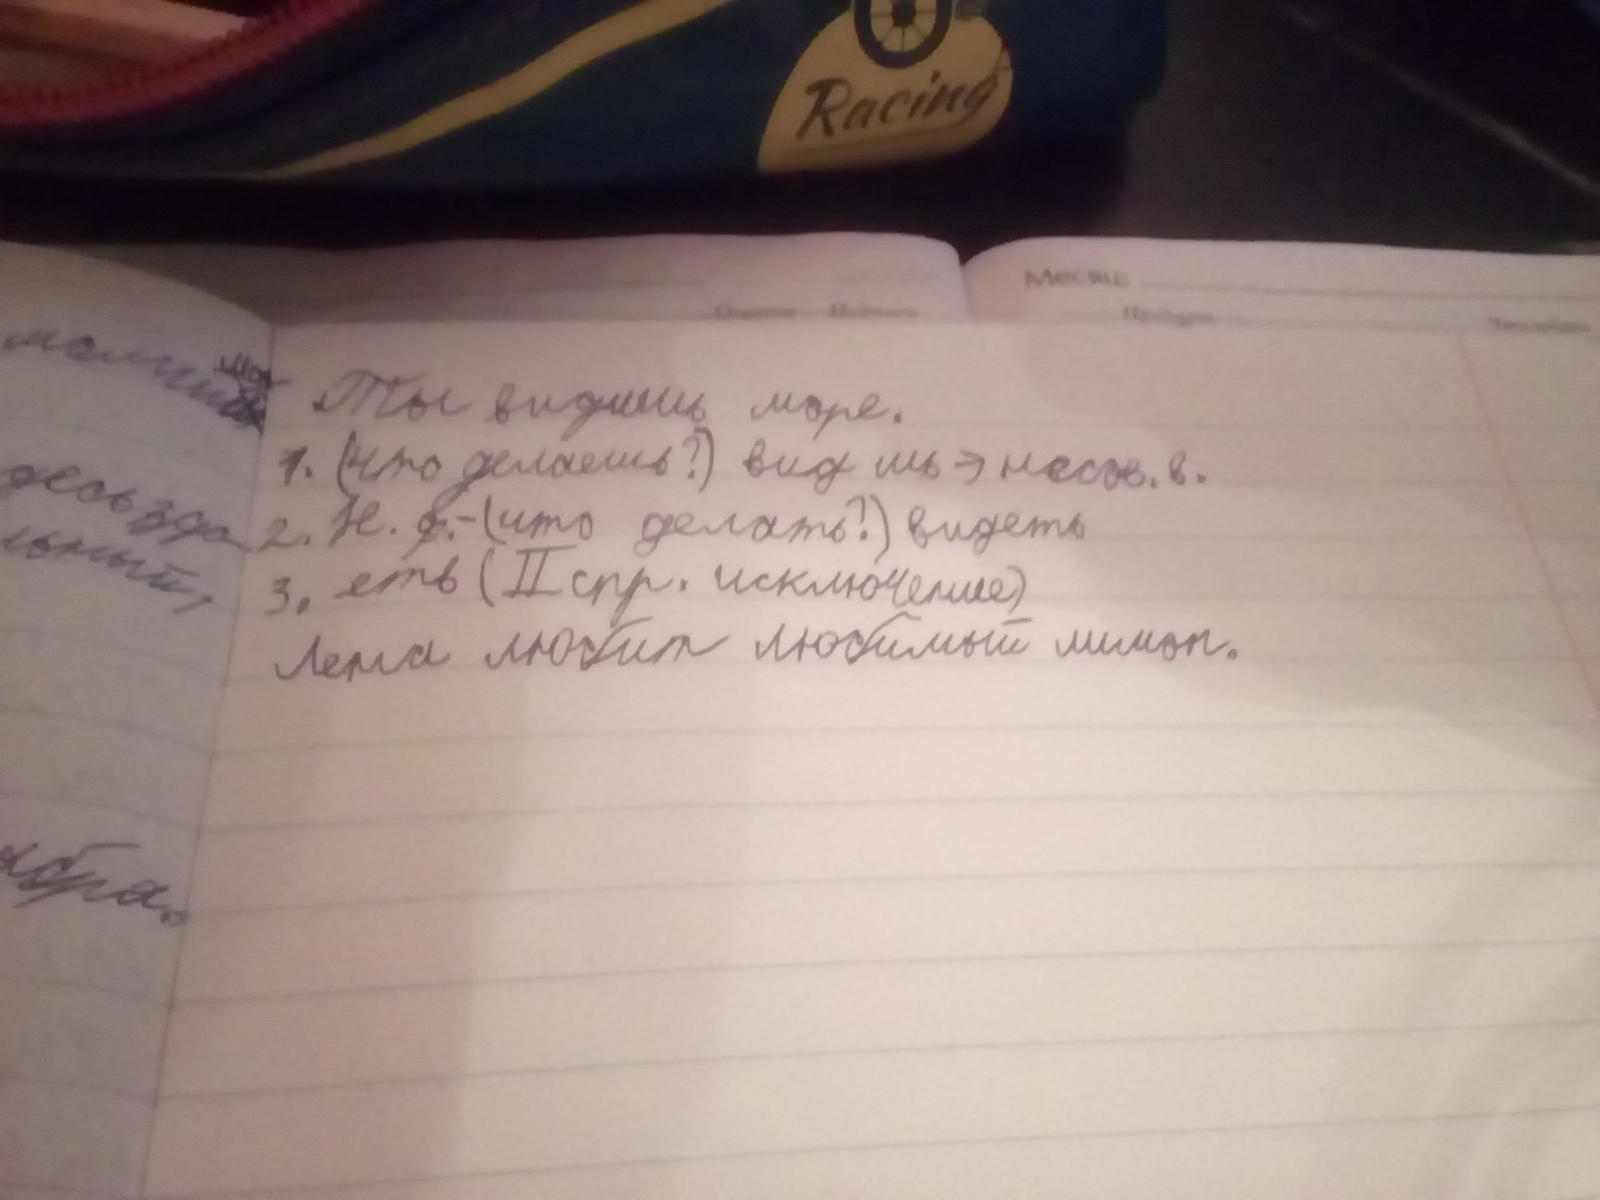 Racing
Месяц
Оценка Подпись
Предмет
Ты видишь море.
1. (что делаешь?) вид шь → несов. в.
2. Н. ф. - (что делать?) видеть
3. еть (II спр. исключение)
Лена любит любимый лимон.
ября.